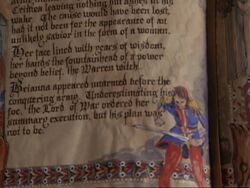 Leitha leaving nothing but ashes in his
wake. The cause would have been lost,
had it not been for the appearance of an
unlikely savior in the form of a woman.
Her face lined with years of wisdom,
her hands the fountainhead of a power
beyond belief, the Warren witch.
Brianna appeared unarmed before the
conquering army. Underestimating his
foe, the Lord of War ordered her
summary execution, but his plan was
not to be.